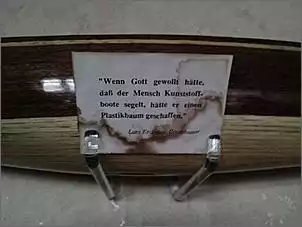 "Wenn Gott gewollt hätte,
daß der Mensch Kunststoff-
boote segelt, hätte er einen
Plastikbaum geschaffen."
Lars